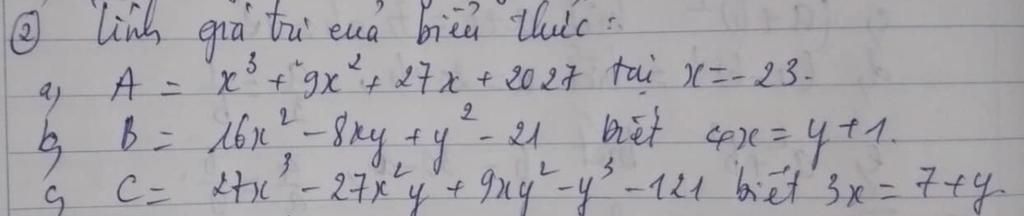 ② Tính giá trị của biểu thức:
a, A = x³ + 9x² + 27x + 2027 tại x = -23.
b, B = 16x² - 8xy + y² - 21 biết 4x = y + 1.
c, C = 27x³ - 27x²y + 9xy² - y³ - 121 biết 3x = 7 + y.